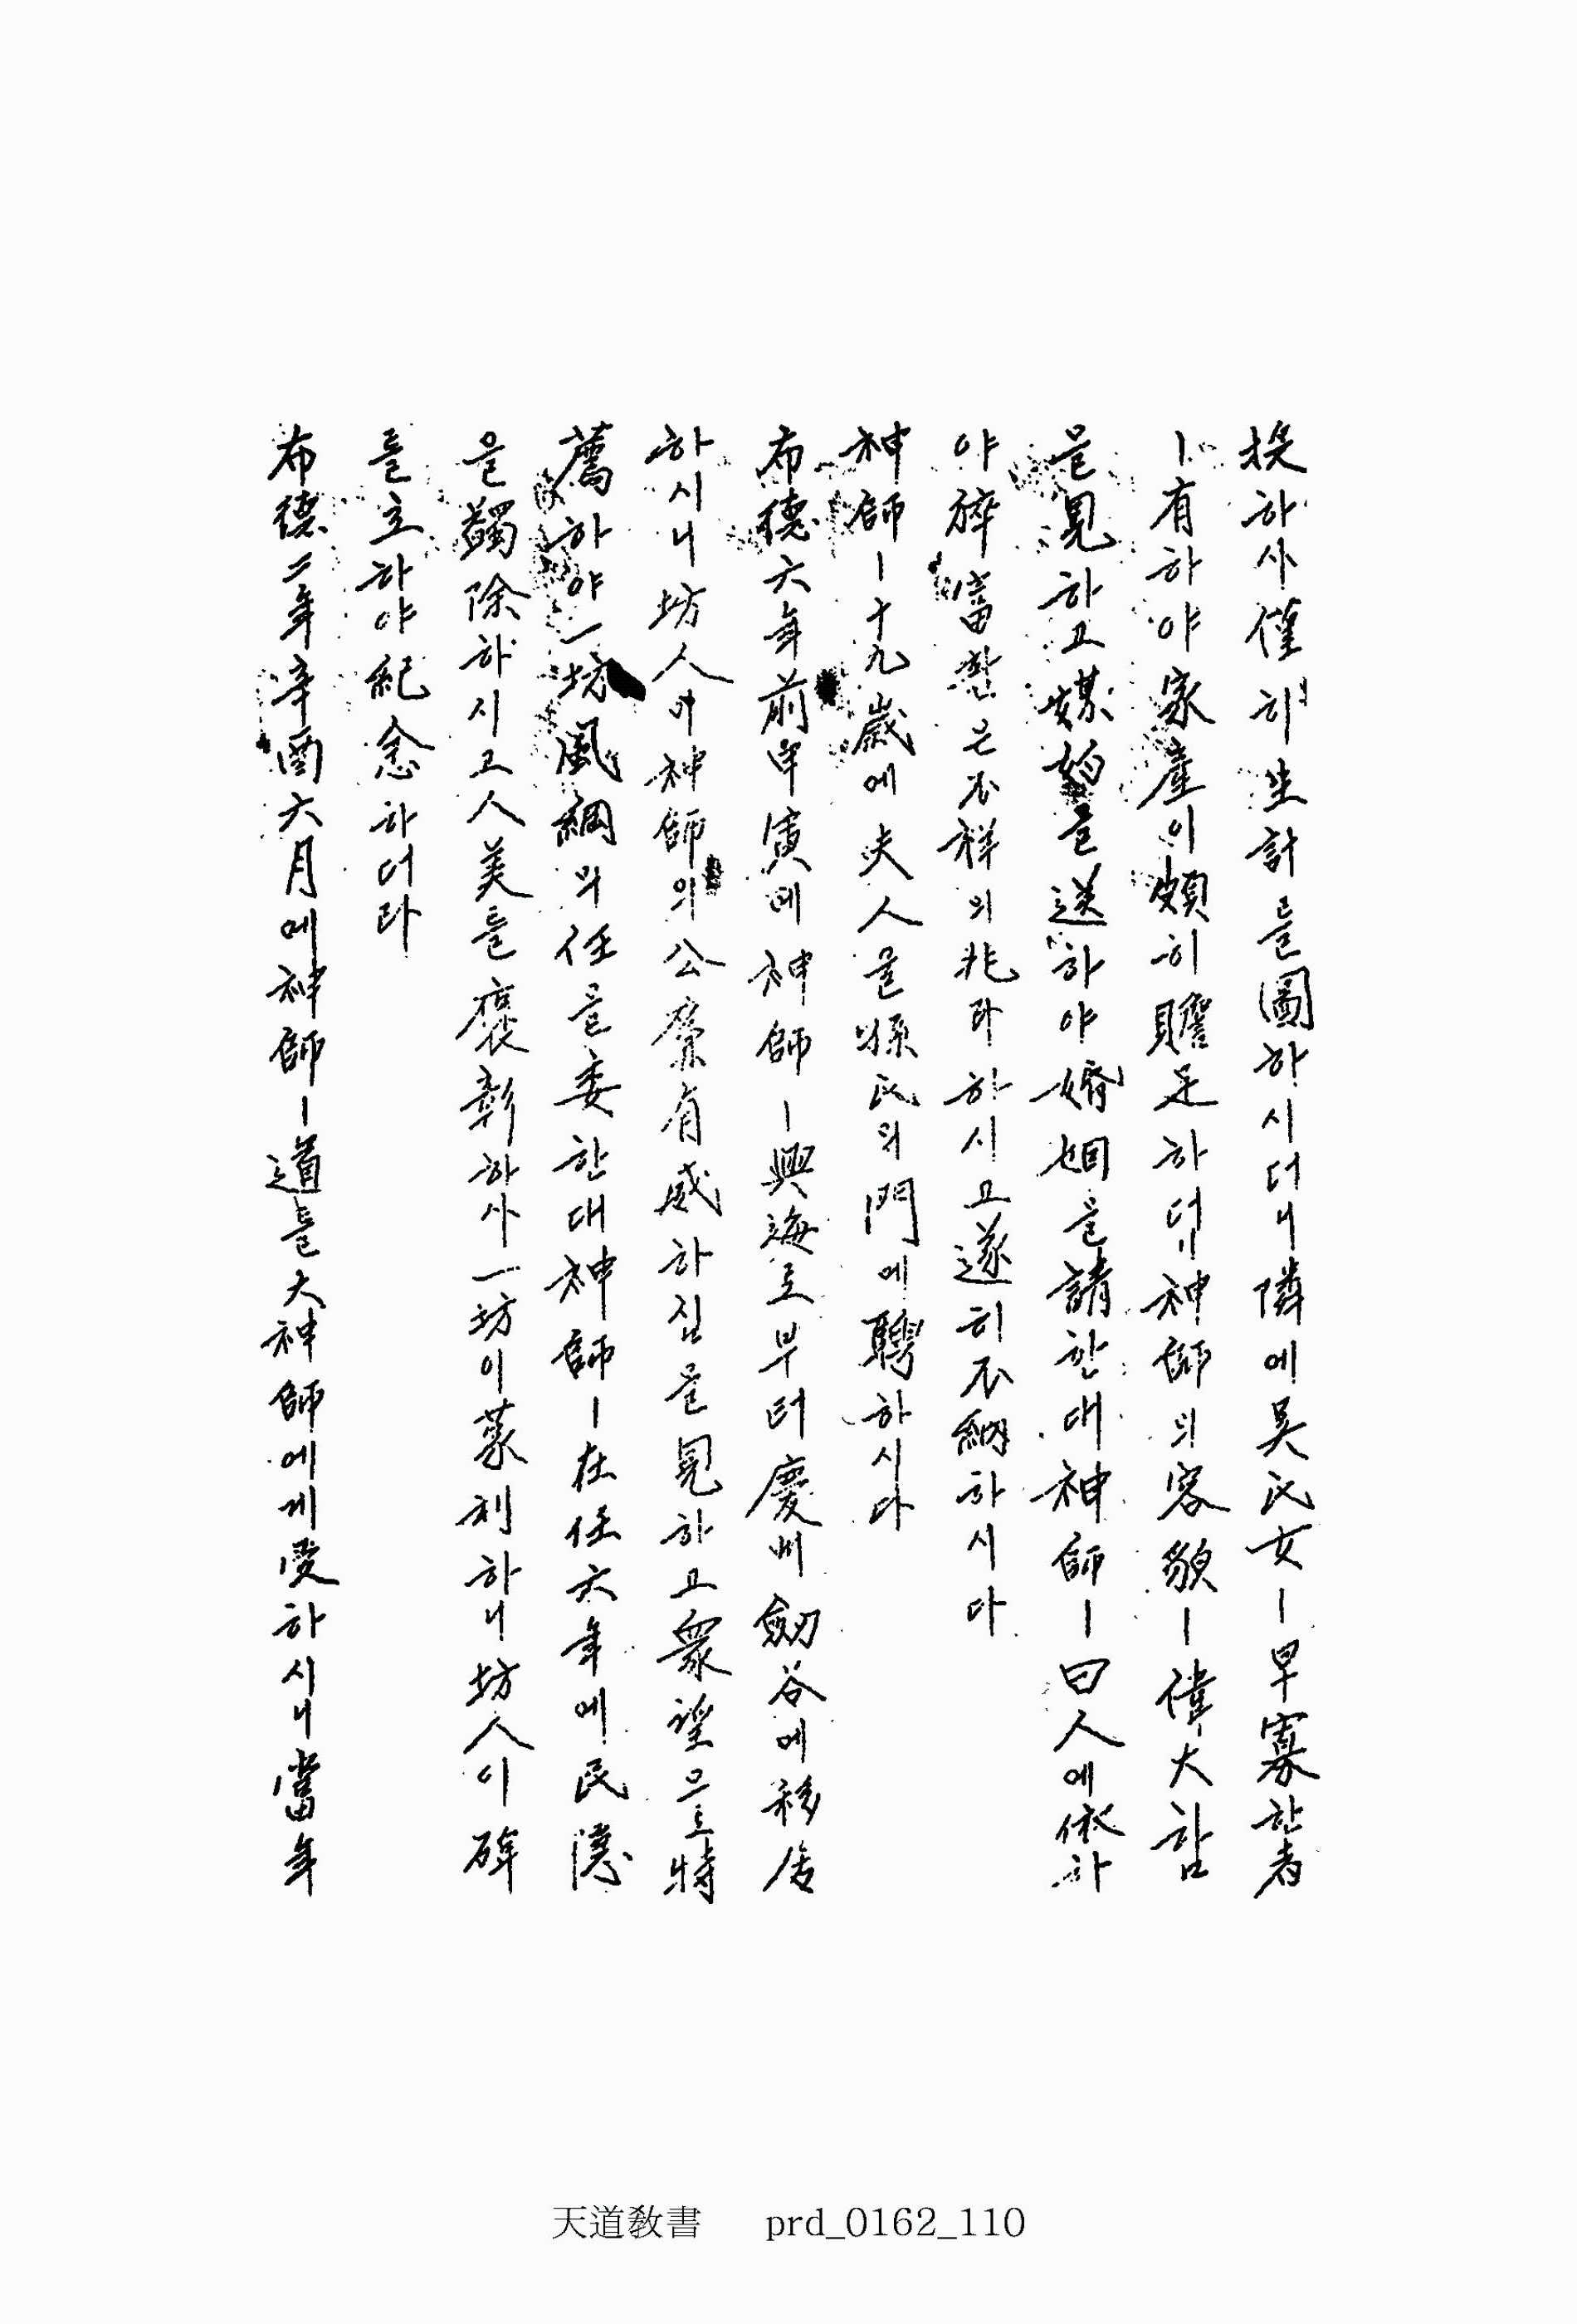 投하사僅히生計를圖하시더니隣에吳氏女ㅣ早寡한者
ㅣ有하야家産이頗히贍足하더니神師의容貌ㅣ偉大함
을見하고媒妁을送하야婚姻을請한대神師ㅣ曰人에依하
야猝富함은不祥의兆라하시고遂히不納하시다
神師ㅣ十九歲에夫人을孫氏의門에聘하시다
布德六年前甲寅에神師ㅣ興海로부터慶州劒谷에移居
하시니坊人이神師의公廉有威하심을見하고衆望으로特
薦하야一坊風綱의任을委한대神師ㅣ在任六年에民隱
을蠲除하시고人美를褒彰하사一坊이蒙利하니坊人이碑
를立하야紀念하더라
布德二年辛酉六月에神師ㅣ道를大神師에게受하시니當年
天道敎書 prd_0162_110